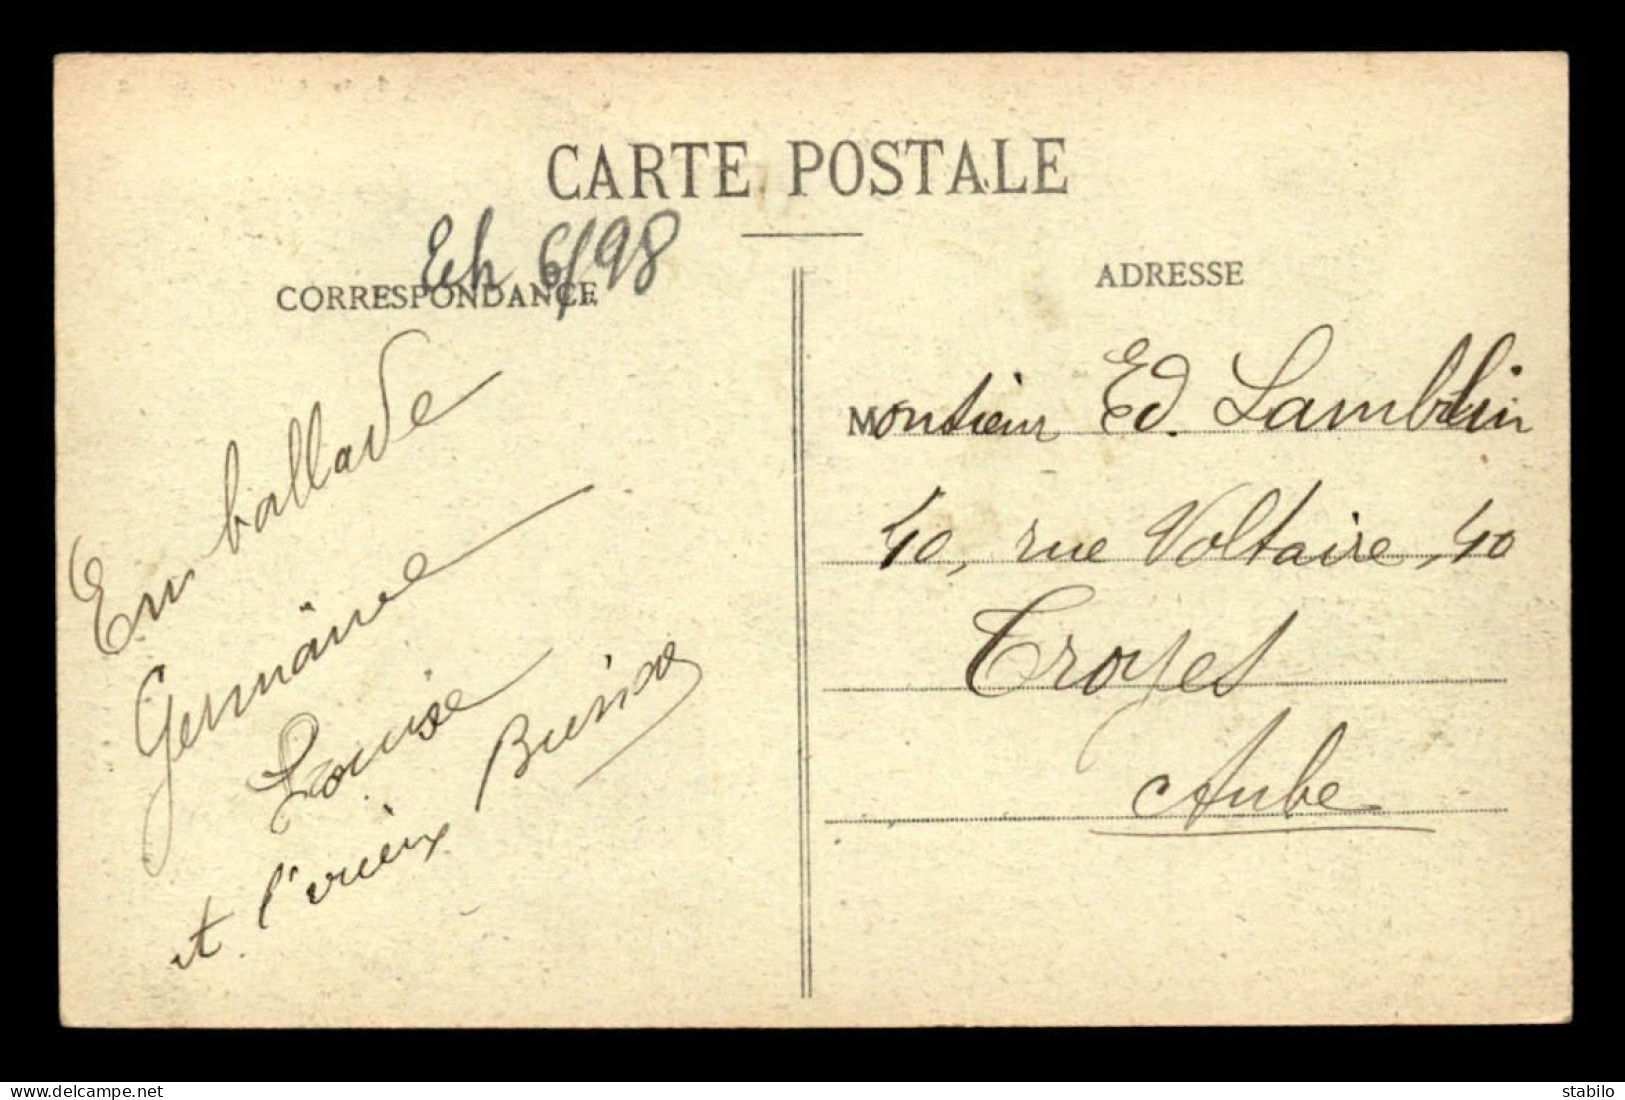 CARTE POSTALE
Ech 6/98
CORRESPONDANCE
En ballade
Germaine
Louise
et l'vieux
ADRESSE
Monsieur Ed. Lamblin
40, rue Voltaire, 40
Troyes
Aube
stabilo
delcampe.net